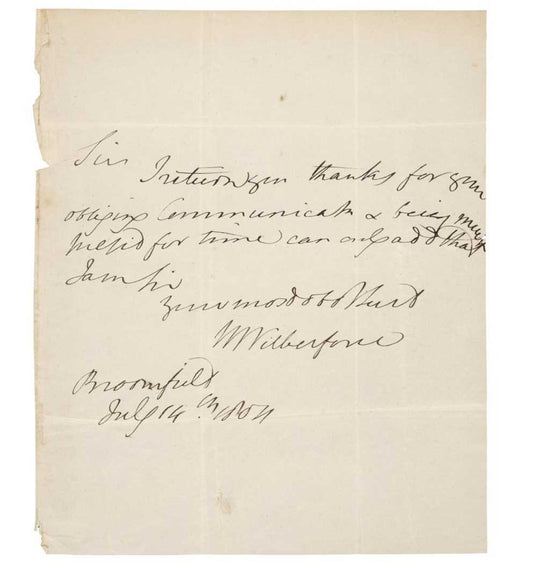 Sir
I return you thanks for your
obliging Communicatn & being much
press'd for time can only add that
I am Sir
your most obedt Servt
W Wilberforce
Broomfield
July 14th 1804